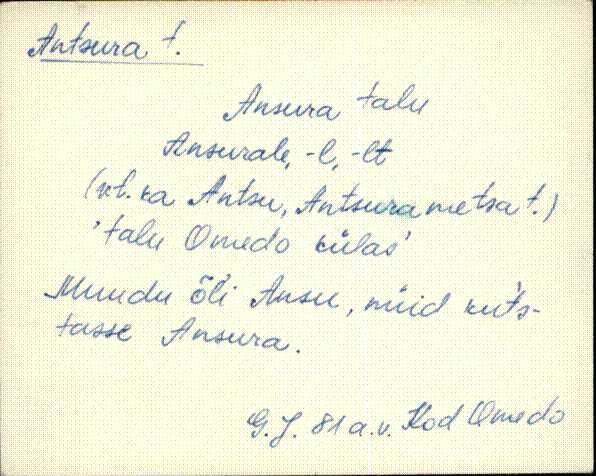 Antsura t.
Ansura talu
Ansurale, -l, -lt
(vt. ka Antsu, Antsura metsa t.)
'talu Omedo külas'
Muudu õli Ansu, nüid kuts-
tasse Ansura.
G. J. 81 a. v. Kod Omedo